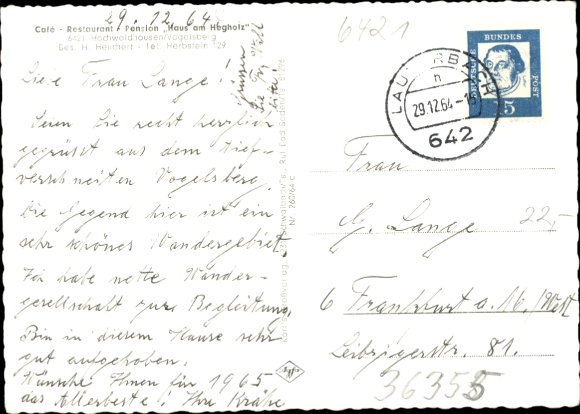 29.12.64
Café - Restaurant - Pension „Haus am Hegholz"
6421 Hochwaldhausen/Vogelsberg
Bes. H. Heichert - Tel. Herbstein 129
Liebe Frau Lange!
Seien Sie recht herzlich
gegrüsst aus dem tief-
verschneiten Vogelsberg.
Die Gegend hier ist ein
sehr schönes Wandergebiet.
Ich habe nette Wander-
gesellschaft zur Begleitung.
Bin in diesem Hause sehr
gut aufgehoben.
Wünsche Ihnen für 1965
das Allerbeste! Ihre Krähe
Grüssen
Sie
bitte!
Agfa
6421
LAUTERBACH
h
29.12.64-18
642
DEUTSCHE
BUNDES
POST
5
Frau
G. Lange
22,-
6 Frankfurt a. M./West
Leipzigerstr. 81.
36355